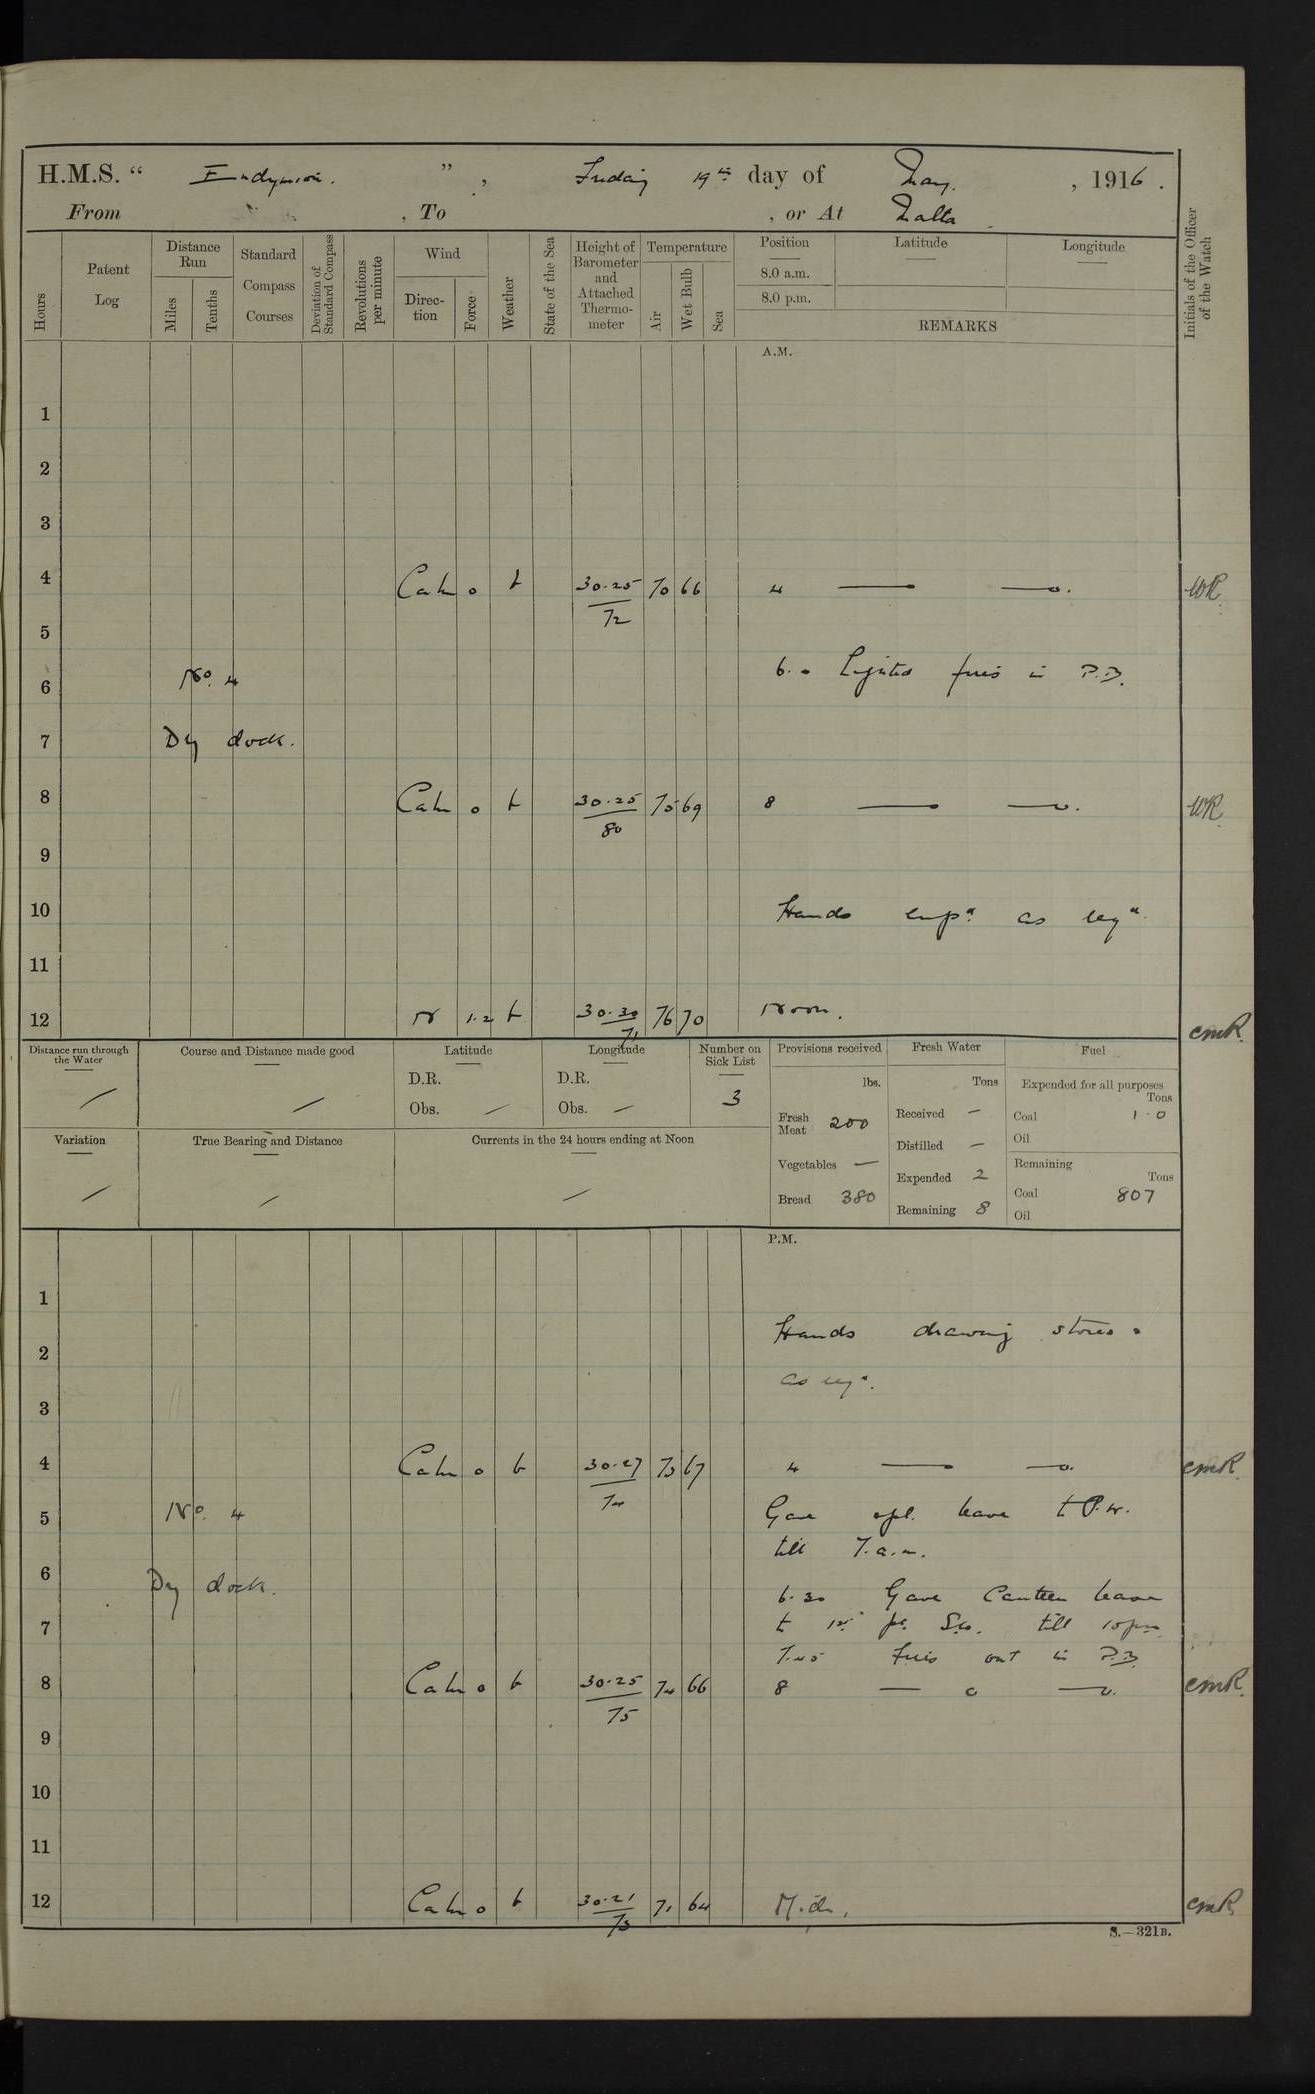 H.M.S. “ Endymion. ” , Friday 19th day of May. , 1916 .
From , To , or At Malta
Hours
Patent Log
Distance Run
Miles
Tenths
Standard Compass Courses
Deviation of Standard Compass
Revolutions per minute
Wind
Direc-tion
Force
Weather
State of the Sea
Height of Barometer and Attached Thermo-meter
Temperature
Air
Wet Bulb
Sea
Position
8.0 a.m.
8.0 p.m.
Latitude
Longitude
REMARKS
Initials of the Officer of the Watch
A.M.
1
2
3
4 Calm 0 b 30.25/72 70 66 4 — —o. WR
5
6 No. 4 6.0 Lighted fires in P.B.
7 Dry dock.
8 Calm 0 b 30.25/80 75 69 8 — —o. WR
9
10 Hands empd. as reqd.
11
12 N 1.2 b 30.30/71 76 70 Noon. CMR
Distance run through the Water /
Course and Distance made good /
Latitude
D.R.
Obs. /
Longitude
D.R.
Obs. /
Number on Sick List
3
Provisions received
lbs.
Fresh Meat 200
Vegetables —
Bread 380
Fresh Water
Tons
Received —
Distilled —
Expended 2
Remaining 8
Fuel
Expended for all purposes
Tons
Coal 1 . 0
Oil
Remaining
Tons
Coal 807
Oil
Variation /
True Bearing and Distance /
Currents in the 24 hours ending at Noon /
P.M.
1
2 Hands drawing stores &
as reqd.
3
4 Calm 0 b 30.27/74 73 67 4 — —o. CMR
5 No. 4 Gave spl. leave to P.W.
till 7.a.m.
6 Dry dock.
6.30 Gave Canteen leave
7 to 1st pt. Sto. till 10pm
7.45 Fires out in P.B.
8 Calm 0 b 30.25/75 74 66 8 — o —o. CMR
9
10
11
12 Calm 0 b 30.21/73 71 64 Mid. CMR
S.—321B.